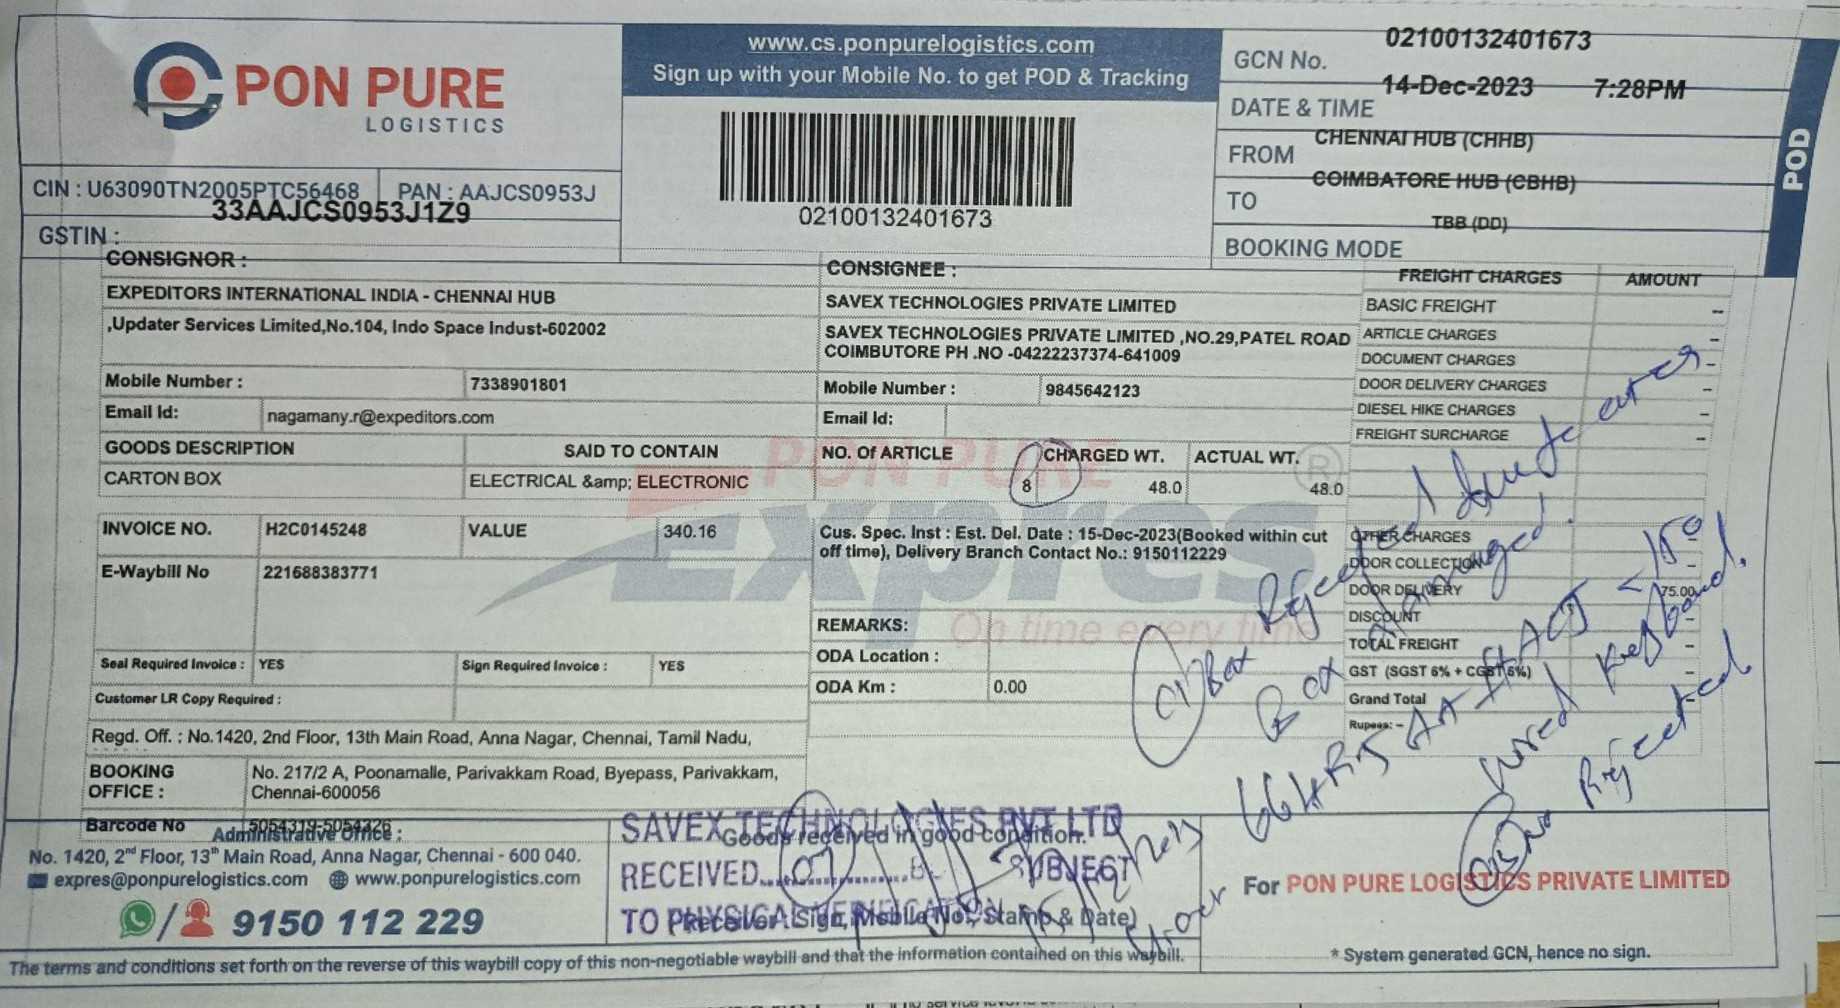 www.cs.ponpurelogistics.com
Sign up with your Mobile No. to get POD & Tracking
PON PURE
LOGISTICS
CIN : U63090TN2005PTC56468 PAN : AAJCS0953J
33AAJCS0953J1Z9
GSTIN :
02100132401673
GCN No. 02100132401673
DATE & TIME 14-Dec-2023 7:28PM
FROM CHENNAI HUB (CHHB)
TO COIMBATORE HUB (CBHB)
BOOKING MODE TBB (DD)
POD
CONSIGNOR :
EXPEDITORS INTERNATIONAL INDIA - CHENNAI HUB
,Updater Services Limited,No.104, Indo Space Indust-602002
Mobile Number : 7338901801
Email Id: nagamany.r@expeditors.com
CONSIGNEE :
SAVEX TECHNOLOGIES PRIVATE LIMITED
SAVEX TECHNOLOGIES PRIVATE LIMITED ,NO.29,PATEL ROAD
COIMBUTORE PH .NO -04222237374-641009
Mobile Number : 9845642123
Email Id:
GOODS DESCRIPTION SAID TO CONTAIN NO. Of ARTICLE CHARGED WT. ACTUAL WT.
CARTON BOX ELECTRICAL &amp; ELECTRONIC 8 48.0 48.0
INVOICE NO. H2C0145248 VALUE 340.16
E-Waybill No 221688383771
Cus. Spec. Inst : Est. Del. Date : 15-Dec-2023(Booked within cut
off time), Delivery Branch Contact No.: 9150112229
REMARKS:
ODA Location :
ODA Km : 0.00
Seal Required Invoice : YES Sign Required Invoice : YES
Customer LR Copy Required :
Regd. Off. : No.1420, 2nd Floor, 13th Main Road, Anna Nagar, Chennai, Tamil Nadu,
BOOKING
OFFICE :
No. 217/2 A, Poonamalle, Parivakkam Road, Byepass, Parivakkam,
Chennai-600056
Barcode No 5054319-5054326
FREIGHT CHARGES AMOUNT
BASIC FREIGHT -
ARTICLE CHARGES -
DOCUMENT CHARGES -
DOOR DELIVERY CHARGES -
DIESEL HIKE CHARGES -
FREIGHT SURCHARGE -
OTHER CHARGES
DOOR COLLECTION -
DOOR DELIVERY 75.00
DISCOUNT -
TOTAL FREIGHT -
GST (SGST 6% + CGST 6%) -
Grand Total -
Rupees: -
PON PURE
Expres
On time every time
Box Rejected
Box damaged.
Wired Keyboard.
Rejected
Administrative Office :
No. 1420, 2nd Floor, 13th Main Road, Anna Nagar, Chennai - 600 040.
expres@ponpurelogistics.com www.ponpurelogistics.com
9150 112 229
SAVEX TECHNOLOGIES PVT LTD
Goods received in good condition.
RECEIVED 07 SUBJECT
TO PHYSICAL VERIFICATION
Receiver Sign, Mobile No, Stamp & Date)
For PON PURE LOGISTICS PRIVATE LIMITED
* System generated GCN, hence no sign.
The terms and conditions set forth on the reverse of this waybill copy of this non-negotiable waybill and that the information contained on this waybill.